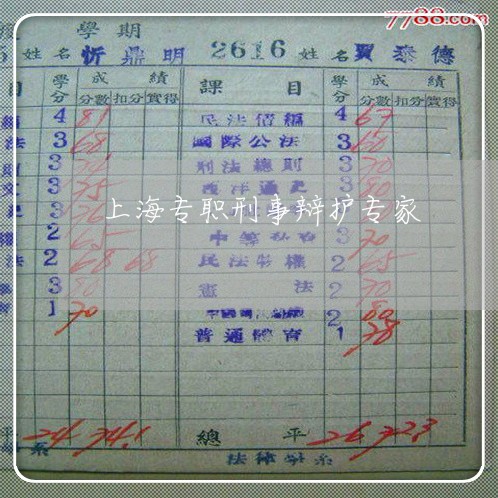 7788.com
學期
姓名 忻鼎明 2616 姓名 賈泰德
目 學分 成績 課目 學分 成績
分數 扣分 實得 分數 扣分 實得
4 81 民法債編 4 67
法 3 68 國際公法 3 60
3 刑法總則 3 70
文 3 75 西洋通史 3 80
史 3 76 3
上海专职刑事辩护专家
權 2 65 3 70
法 2 68 68 民法物權 2 65
3 80 憲法 2 70
育 1 70 2 80
普通體育 1 78
平 24 74.1 總平 26 72.3
系 法律學系